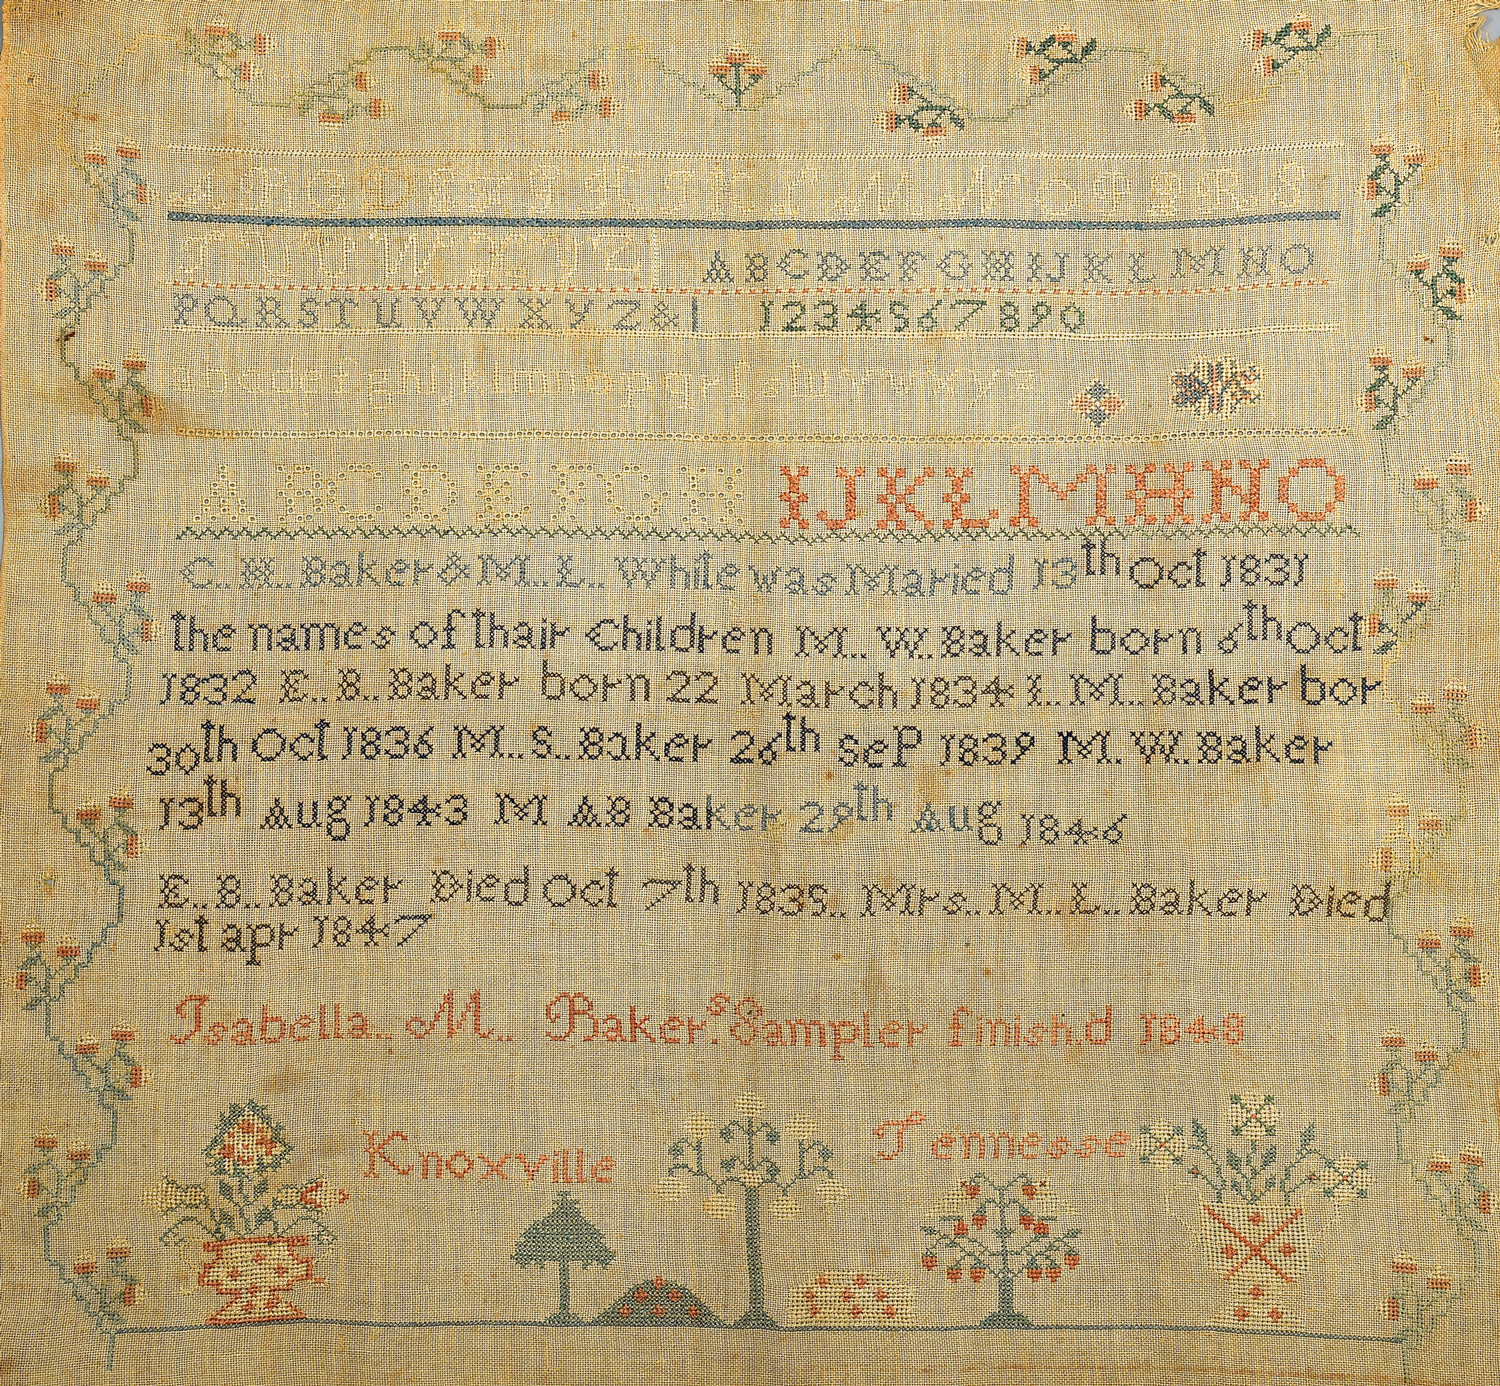 A B C D E F G H I J K L M N O P Q R S
T U V W X Y Z A B C D E F G H I J K L M N O
P Q R S T U V W X Y Z & 1 2 3 4 5 6 7 8 9 0
a b c d e f g h i j k l m n o p q r s t u v w x y z
A B C D E F G H I J K L M H N O
C.. H.. Baker & M.. L.. White was Maried 13th Oct 1831
the names of thair Children M.. W. Baker born 6th Oct
1832 E.. B.. Baker born 22 March 1834 I.. M.. Baker bor
30th Oct 1836 M.. S.. Baker 26th SeP 1839 M. W.. Baker
13th Aug 1843 M AB Baker 29th Aug 1846
E.. B.. Baker Died Oct 7th 1835.. Mrs.. M.. L.. Baker Died
1st apr 1847
Isabella.. M.. Baker.s Sampler finish.d 1848
Knoxville Tennesse